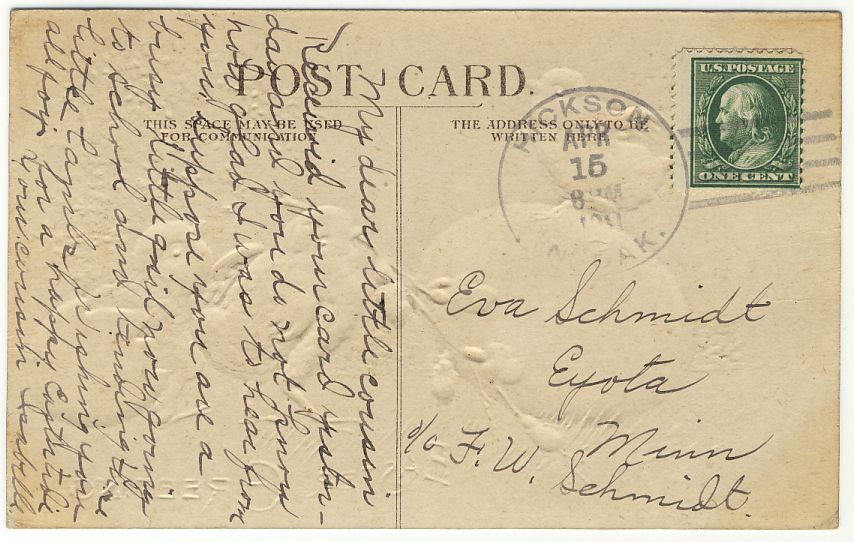 POST CARD.
THIS SPACE MAY BE USED
FOR COMMUNICATION
THE ADDRESS ONLY TO BE
WRITTEN HERE
My dear little cousin
Received your card yster-
day and you do not know
how glad I was to hear from
you. Suppose you are a
busy little girl now going
to school and tending to
little Lambs. Wishing you
all joy for a happy Eastertide
Your cousin
HICKSON
APR
15
8 AM
N. DAK.
U.S. POSTAGE
ONE CENT
Eva Schmidt
Eyota
Minn
c/o F. W. Schmidt.